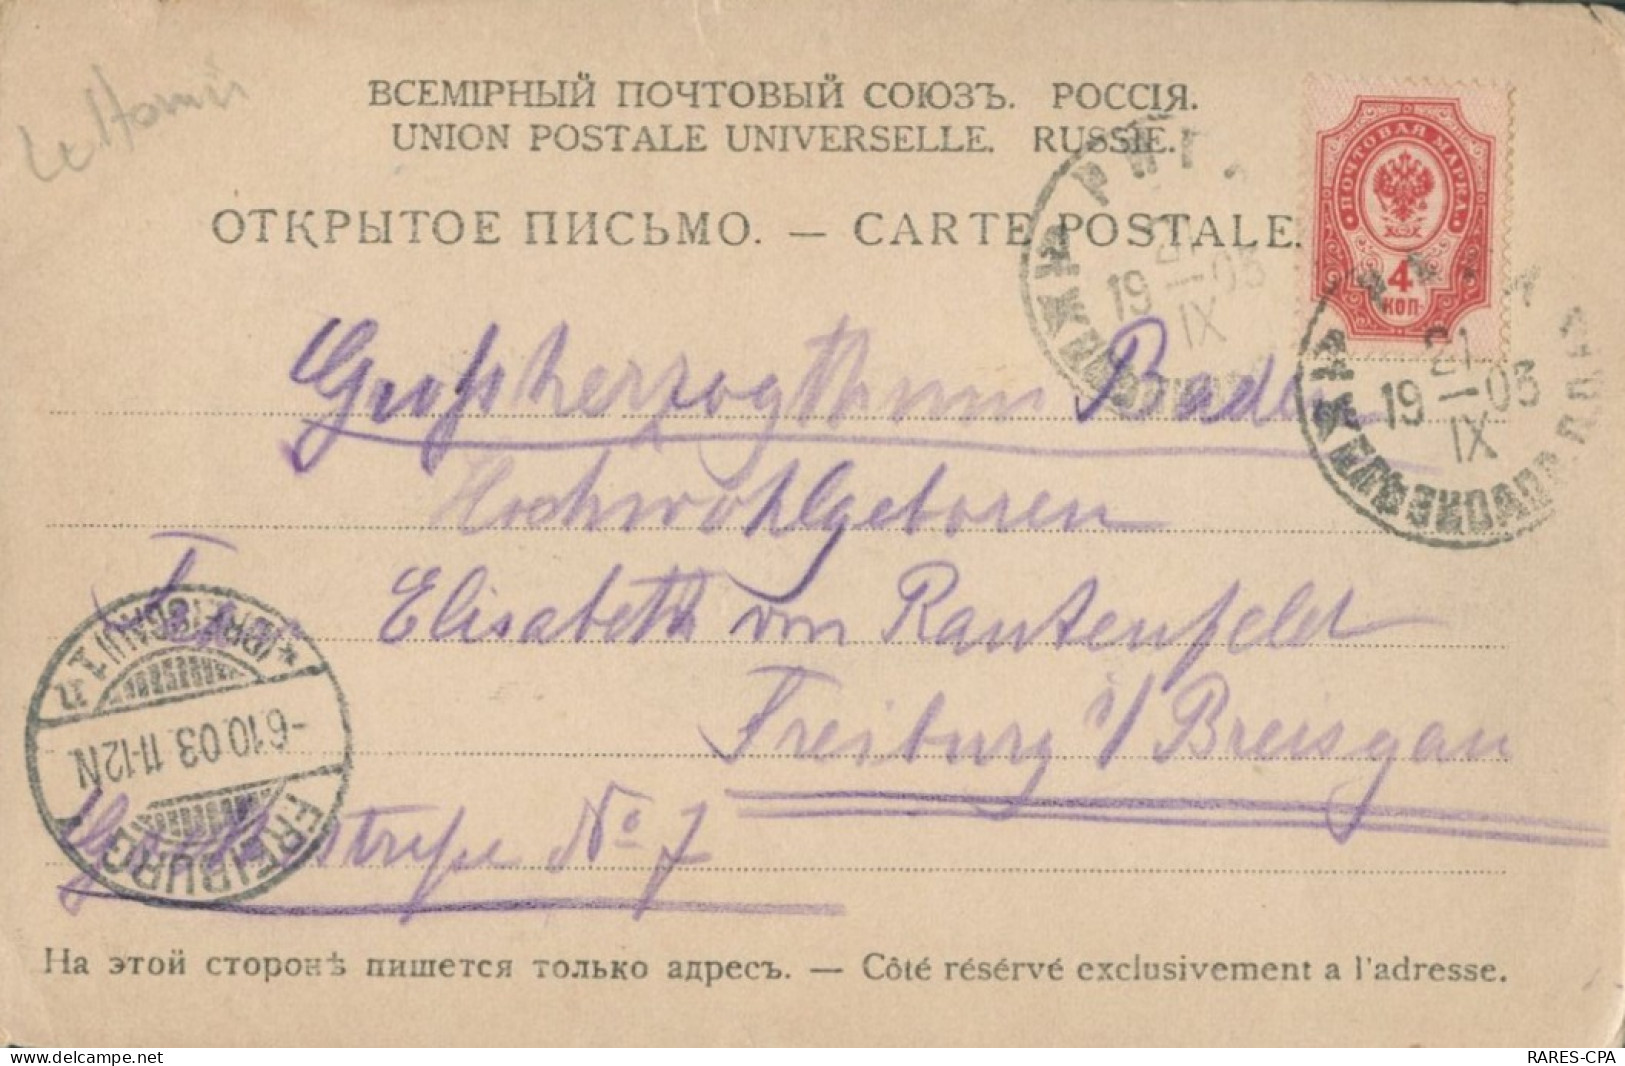 ВСЕМІРНЫЙ ПОЧТОВЫЙ СОЮЗЪ. РОССІЯ.
UNION POSTALE UNIVERSELLE. RUSSIE.
ОТКРЫТОЕ ПИСЬМО. — CARTE POSTALE.
ПОЧТОВАЯ МАРКА
4
КОП.
РИГ
19 — 03
IX
21
19 — 03
IX
Großherzogthum Baden
Hochwohlgeboren
Elisabeth von Rautenfeld
Freiburg i/ Breisgau
straße No 7
*(BREISGAU) 1
-6.10.03. 11-12N
FREIBURG
На этой сторонѣ пишется только адресъ. — Côté résérvé exclusivement a l'adresse.
www.delcampe.net
RARES-CPA